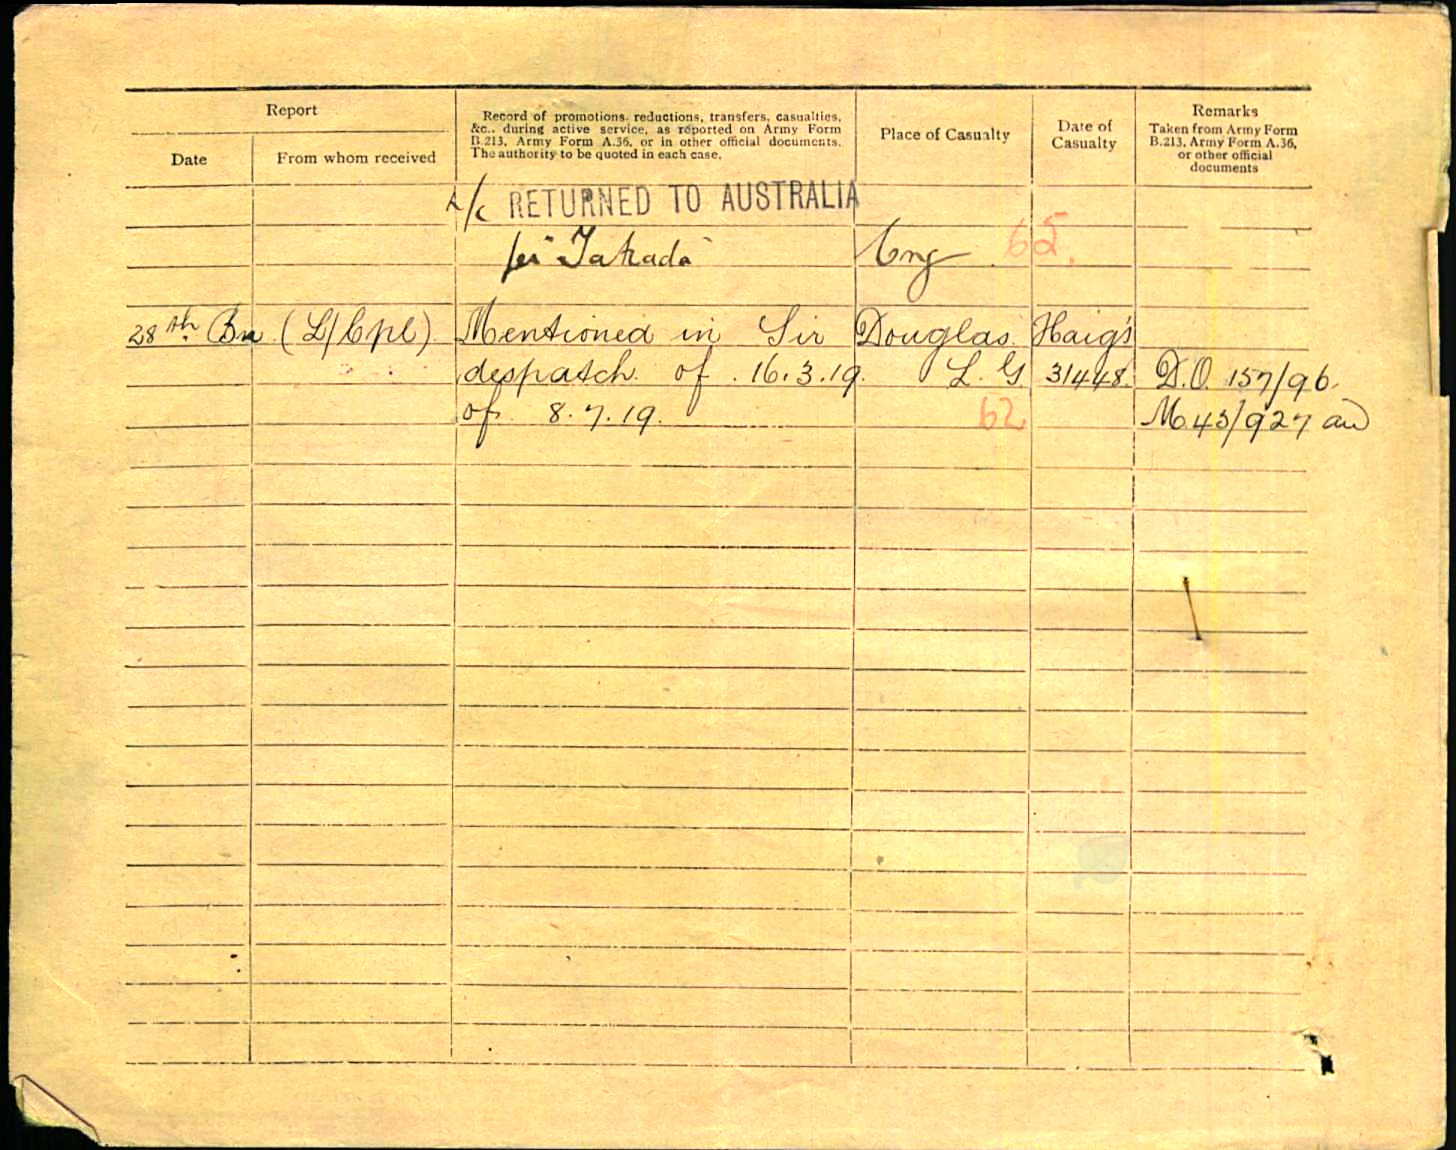 Report
Date
From whom received
Record of promotions, reductions, transfers, casualties,
&c., during active service, as reported on Army Form
B.213, Army Form A.36, or in other official documents.
The authority to be quoted in each case.
Place of Casualty
Date of
Casualty
Remarks
Taken from Army Form
B.213, Army Form A.36,
or other official
documents
RETURNED TO AUSTRALIA
per "Takada" Eng 65.
28th Bn (L/Cpl) Mentioned in Sir Douglas Haig's
despatch of 16.3.19. L.G 31448. D.O. 157/96.
of 8.7.19. 62 M.43/927